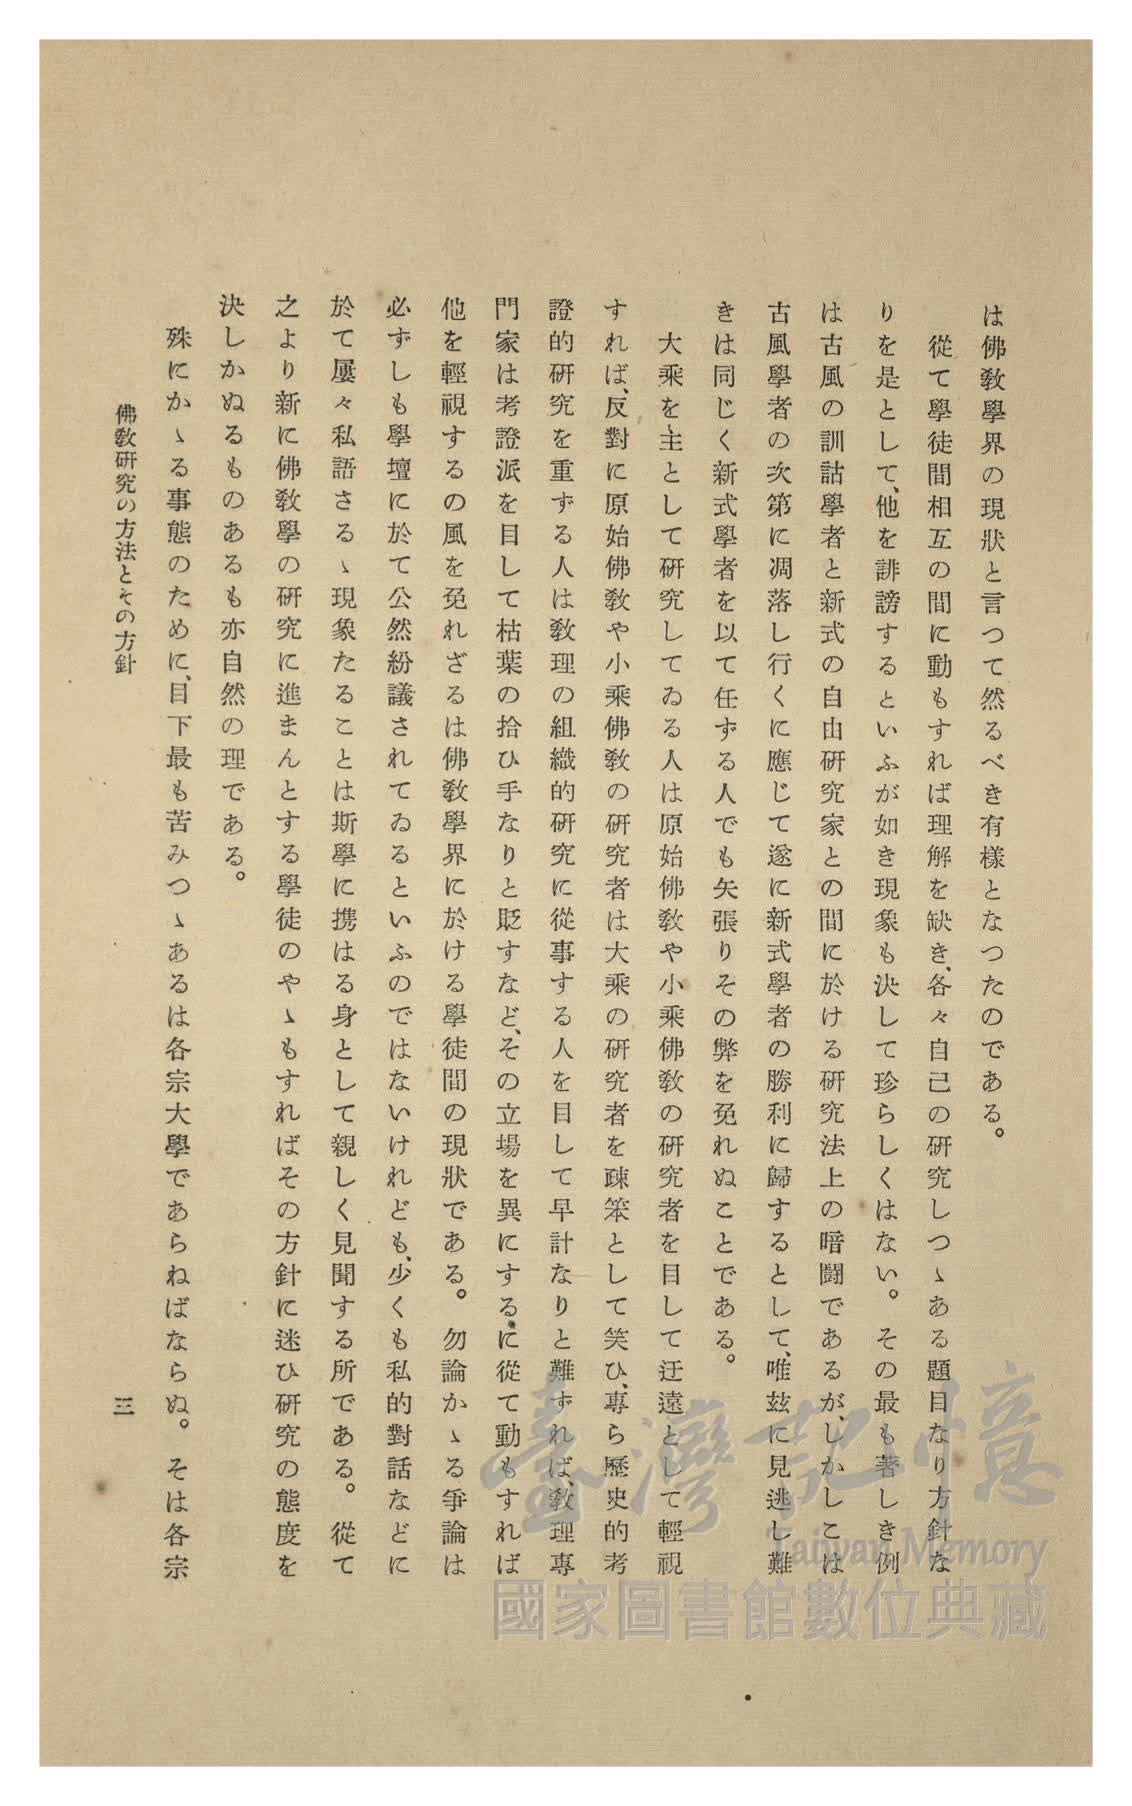 は佛敎學界の現狀と言つて然るべき有樣となつたのである。
從て學徒間相互の間に動もすれば理解を缺き、各々自己の硏究しつゝある題目なり方針な
りを是として、他を誹謗するといふが如き現象も決して珍らしくはない。その最も著しき例
は古風の訓詁學者と新式の自由硏究家との間に於ける硏究法上の暗鬪であるが、しかしこは
古風學者の次第に凋落し行くに應じて遂に新式學者の勝利に歸するとして、唯玆に見逃し難
きは同じく新式學者を以て任ずる人でも矢張りその弊を免れぬことである。
大乘を主として硏究してゐる人は原始佛敎や小乘佛敎の硏究者を目して迂遠として輕視
すれば、反對に原始佛敎や小乘佛敎の硏究者は大乘の硏究者を疎笨として笑ひ、專ら歷史的考
證的硏究を重ずる人は敎理の組織的硏究に從事する人を目して早計なりと難ずれば、敎理專
門家は考證派を目して枯葉の拾ひ手なりと貶すなど、その立場を異にするに從て動もすれば
他を輕視するの風を免れざるは佛敎學界に於ける學徒間の現狀である。勿論かゝる爭論は
必ずしも學壇に於て公然紛議されてゐるといふのではないけれども、少くも私的對話などに
於て屢々私語さるゝ現象たることは斯學に携はる身として親しく見聞する所である。從て
之より新に佛敎學の硏究に進まんとする學徒のやゝもすればその方針に迷ひ硏究の態度を
決しかぬるものあるも亦自然の理である。
殊にかゝる事態のために、目下最も苦みつゝあるは各宗大學であらねばならぬ。そは各宗
佛敎硏究の方法とその方針
三
臺灣記憶
Taiwan Memory
國家圖書館數位典藏